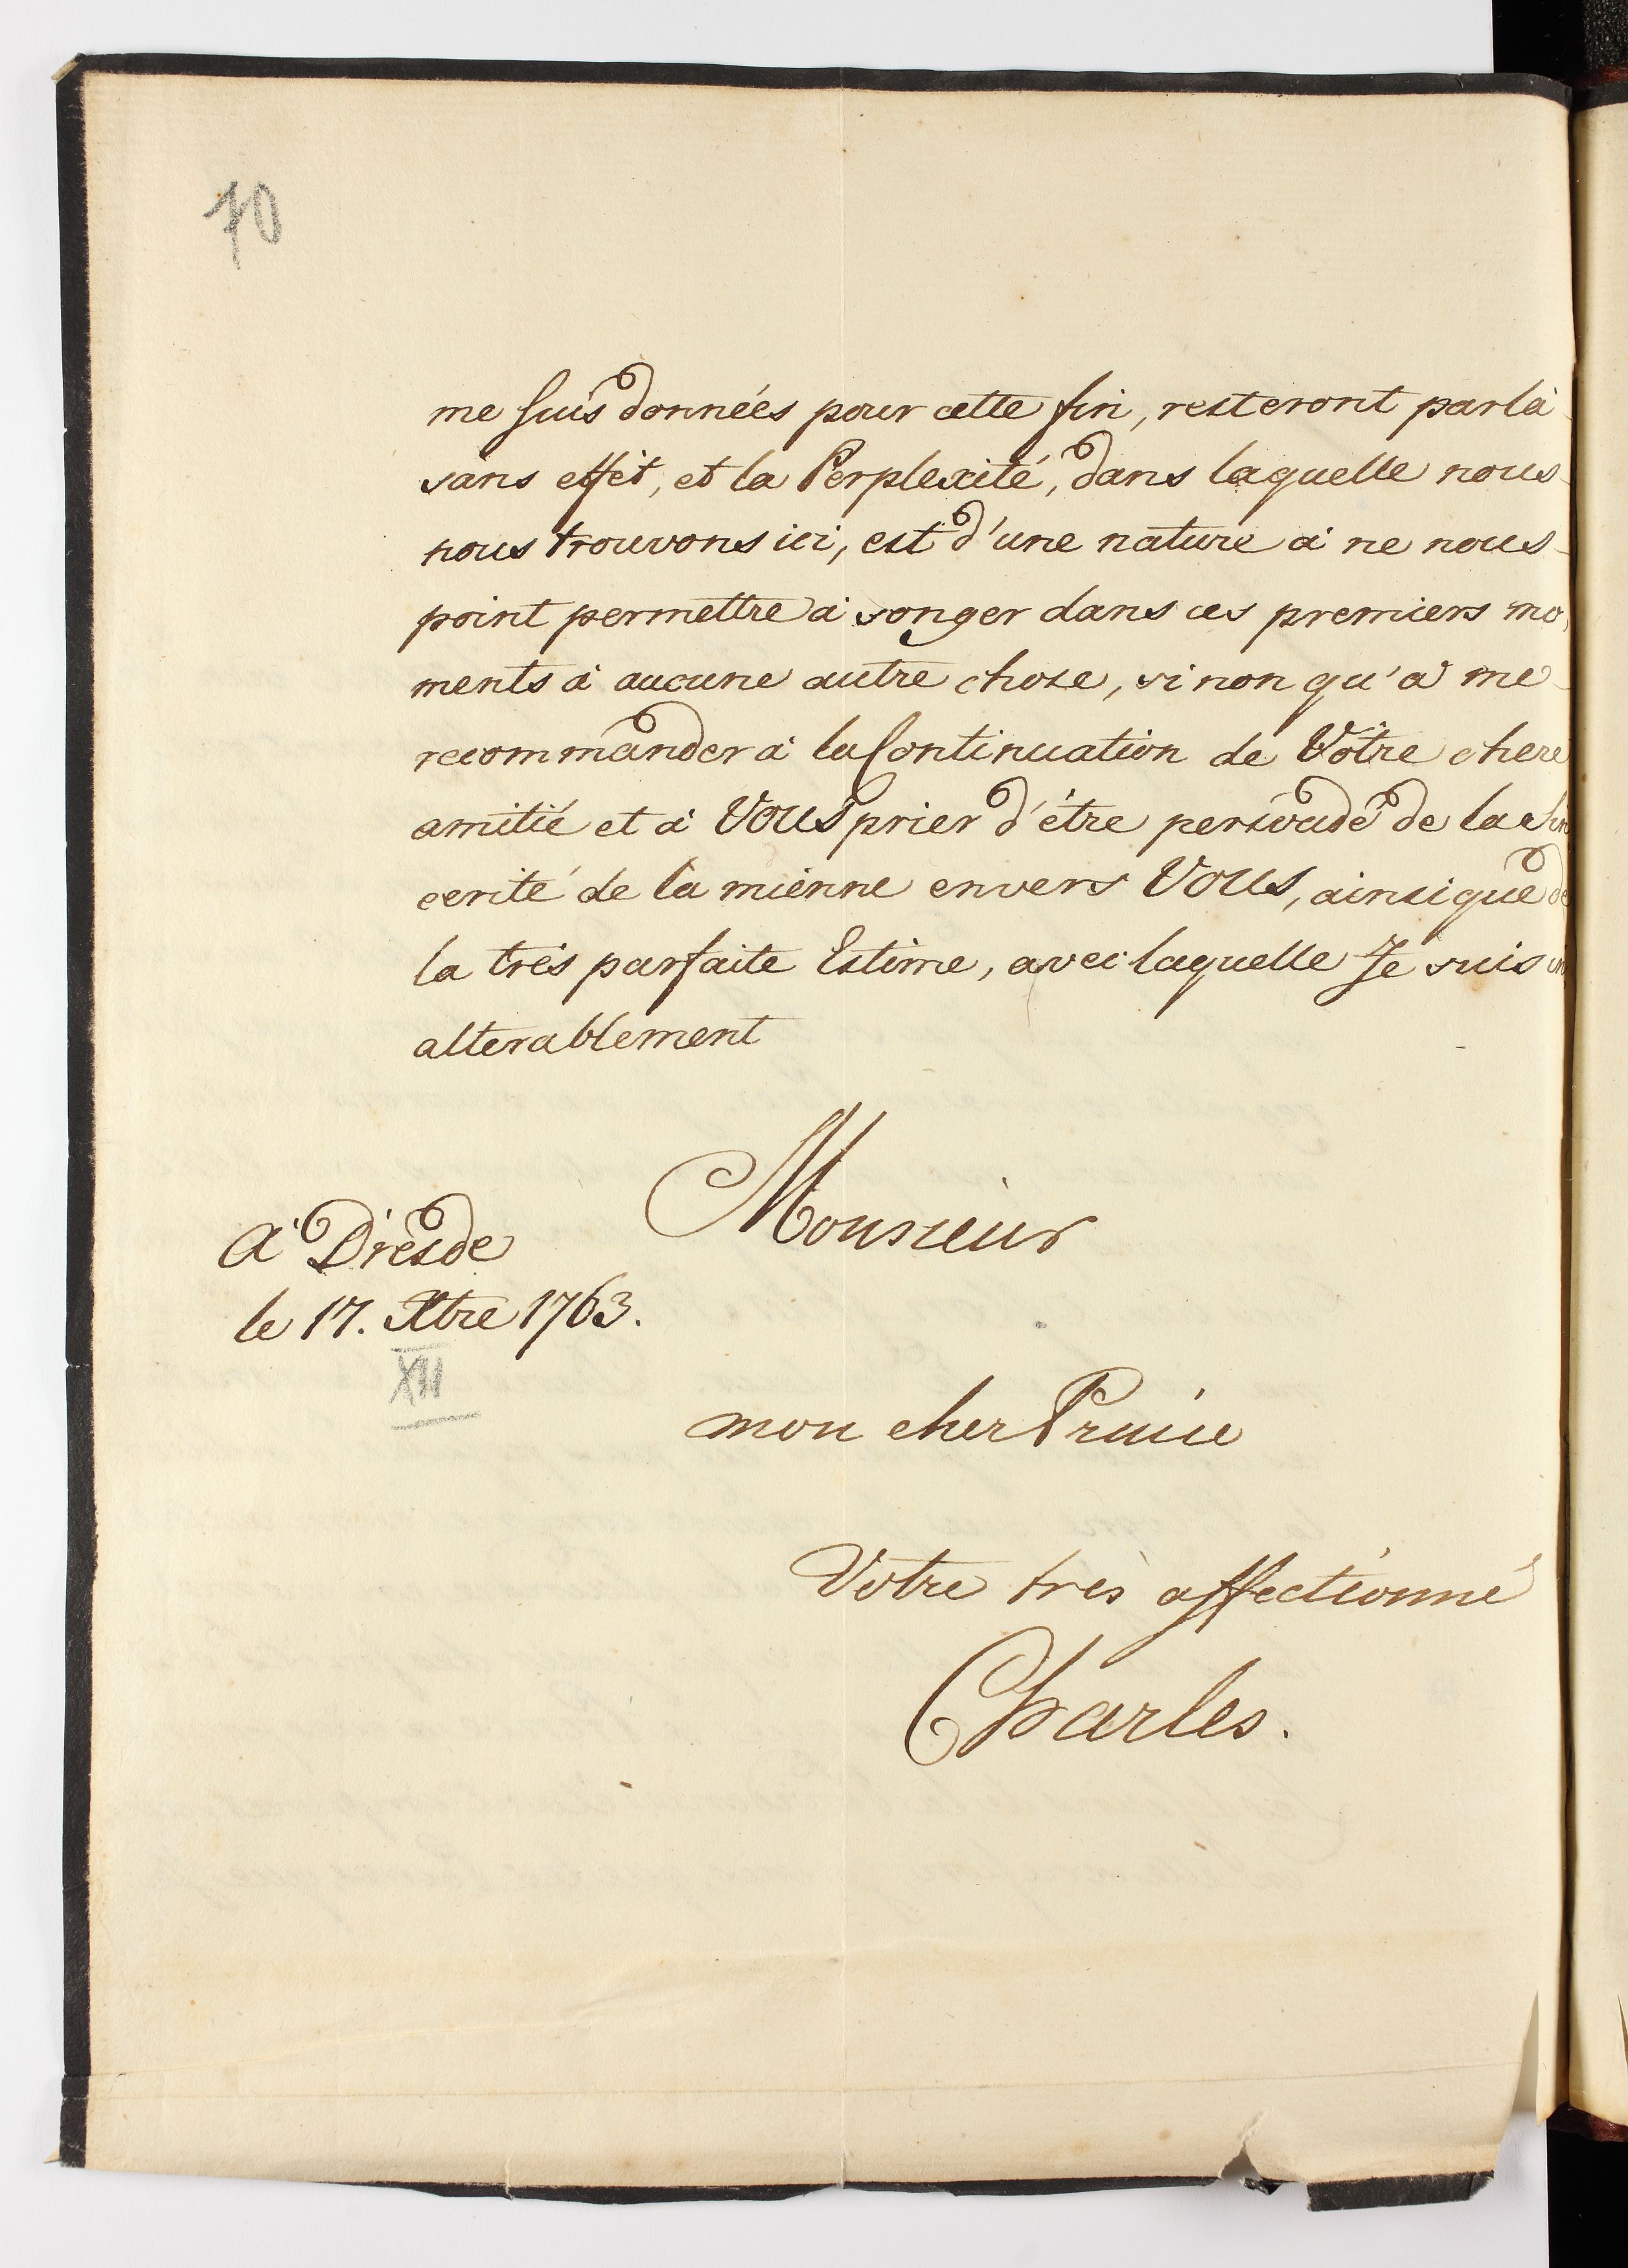 70
me suis données pour cette fin, resteront parlà
sans effét, et la Perplexité, dans laquelle nous
nous trouvons ici, est d'une nature à ne nous
point permettre à songer dans ces premiers mo,
ments à aucune autre chose, si non qu'a me
recommander à la Continuation de Vôtre chere
amitié et à VOUS prier d'étre persvadé de la Sin
cerité de la mienne envers VOUS, ainsi que de
la très parfaite Estime, avec laquelle Je suis in
alterablement
Monsieur
A Dresde
le 17. Xbre 1763.
XII
mon cher Prince
Votre très affectionné
Charles.